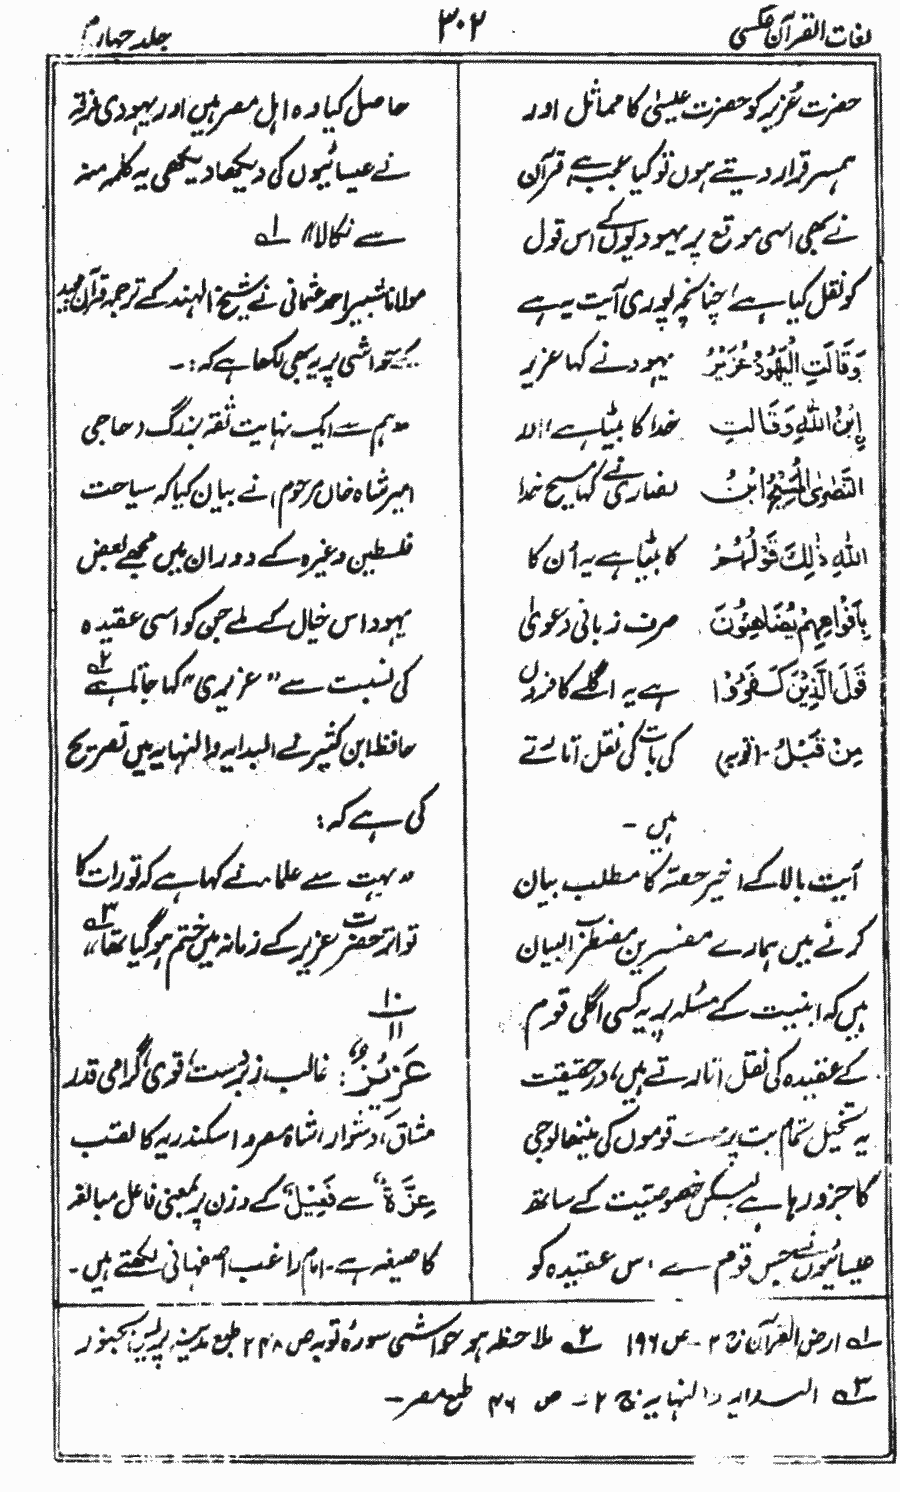 لغات القرآن عکسی
۳۰۲
جلد چہارم
حضرت عُزیر کو حضرت عیسیٰ کا مماثل اور
ہمسر قرار دیتے ہوں تو کیا عجب ہے قرآن
نے بھی اسی موقع پر یہودیوں کے اس قول
کو نقل کیا ہے، چنانچہ پوری آیت یہ ہے
وَقَالَتِ الْیَهُوْدُ عُزَیْرُ یہود نے کہا عزیر
اِبْنُ اللّٰهِ وَقَالَتِ خدا کا بیٹا ہے اور
النَّصٰرَی الْمَسِیْحُ ابْنُ نصاریٰ نے کہا مسیح خدا
اللّٰهِ ذٰلِكَ قَوْلُهُمْ کا بیٹا ہے یہ اُن کا
بِاَفْوَاهِهِمْ یُضَاهِئُوْنَ صرف زبانی دعویٰ
قَوْلَ الَّذِیْنَ كَفَرُوْا ہے یہ اگلے کافروں
مِنْ قَبْلُ - (توبہ) کی بات کی نقل اتارتے
ہیں -
آیت بالا کے اخیر حصّہ کا مطلب بیان
کرنے میں ہمارے مفسرین مضطرب البیان
ہیں کہ ابنیت کے مسئلہ پر یہ کسی اگلی قوم
کے عقیدہ کی نقل اتارتے ہیں، در حقیقت
یہ تخیل تمام بت پرست قوموں کی میتھالوجی
کا جزو رہا ہے لیکن خصوصیت کے ساتھ
عیسائیوں نے جس قوم سے اس عقیدہ کو
حاصل کیا وہ اہل مصر ہیں اور یہودی فرقہ
نے عیسائیوں کی دیکھا دیکھی یہ کلمہ منہ
سے نکالا" ۱ے
مولانا شبیر احمد عثمانی نے شیخ الہند کے ترجمہ قرآن مجید
کے حواشی پر یہ بھی لکھا ہے کہ:۔
"ہم سے ایک نہایت ثقہ بزرگ (حاجی
امیر شاہ خاں مرحوم) نے بیان کیا کہ سیاحت
فلسطین وغیرہ کے دوران میں مجھے بعض
یہود اس خیال کے ملے جن کو اسی عقیدہ
کی نسبت سے "عزیری" کہا جاتا ہے ۲ے
حافظ ابن کثیر نے البدایہ والنہایہ میں تصریح
کی ہے کہ:
"بہت سے علماء نے کہا ہے کہ تورات کا
تواتر حضرت عزیر کے زمانہ میں ختم ہو گیا تھا" ۳ے
۱۰
۱۱
عَزِیْزٌ: غالب، زبردست، قوی، گرامی قدر
مشاق، دشوار، شاہ مصر و اسکندریہ کا لقب
عِزَّۃٌ سے فَعِیْلٌ کے وزن پر بمعنی فاعل مبالغہ
کا صیغہ ہے۔ امام راغب اصفہانی لکھتے ہیں۔
۱ے ارض القرآن ج ۲ - ص ۱۹۶ ۲ے ملاحظہ ہو حواشی سورۂ توبہ ص ۲۴۸ طبع مدینہ پریس بجنور
۳ے البدایہ والنہایہ ج ۲ - ص ۴۶ طبع مصر۔